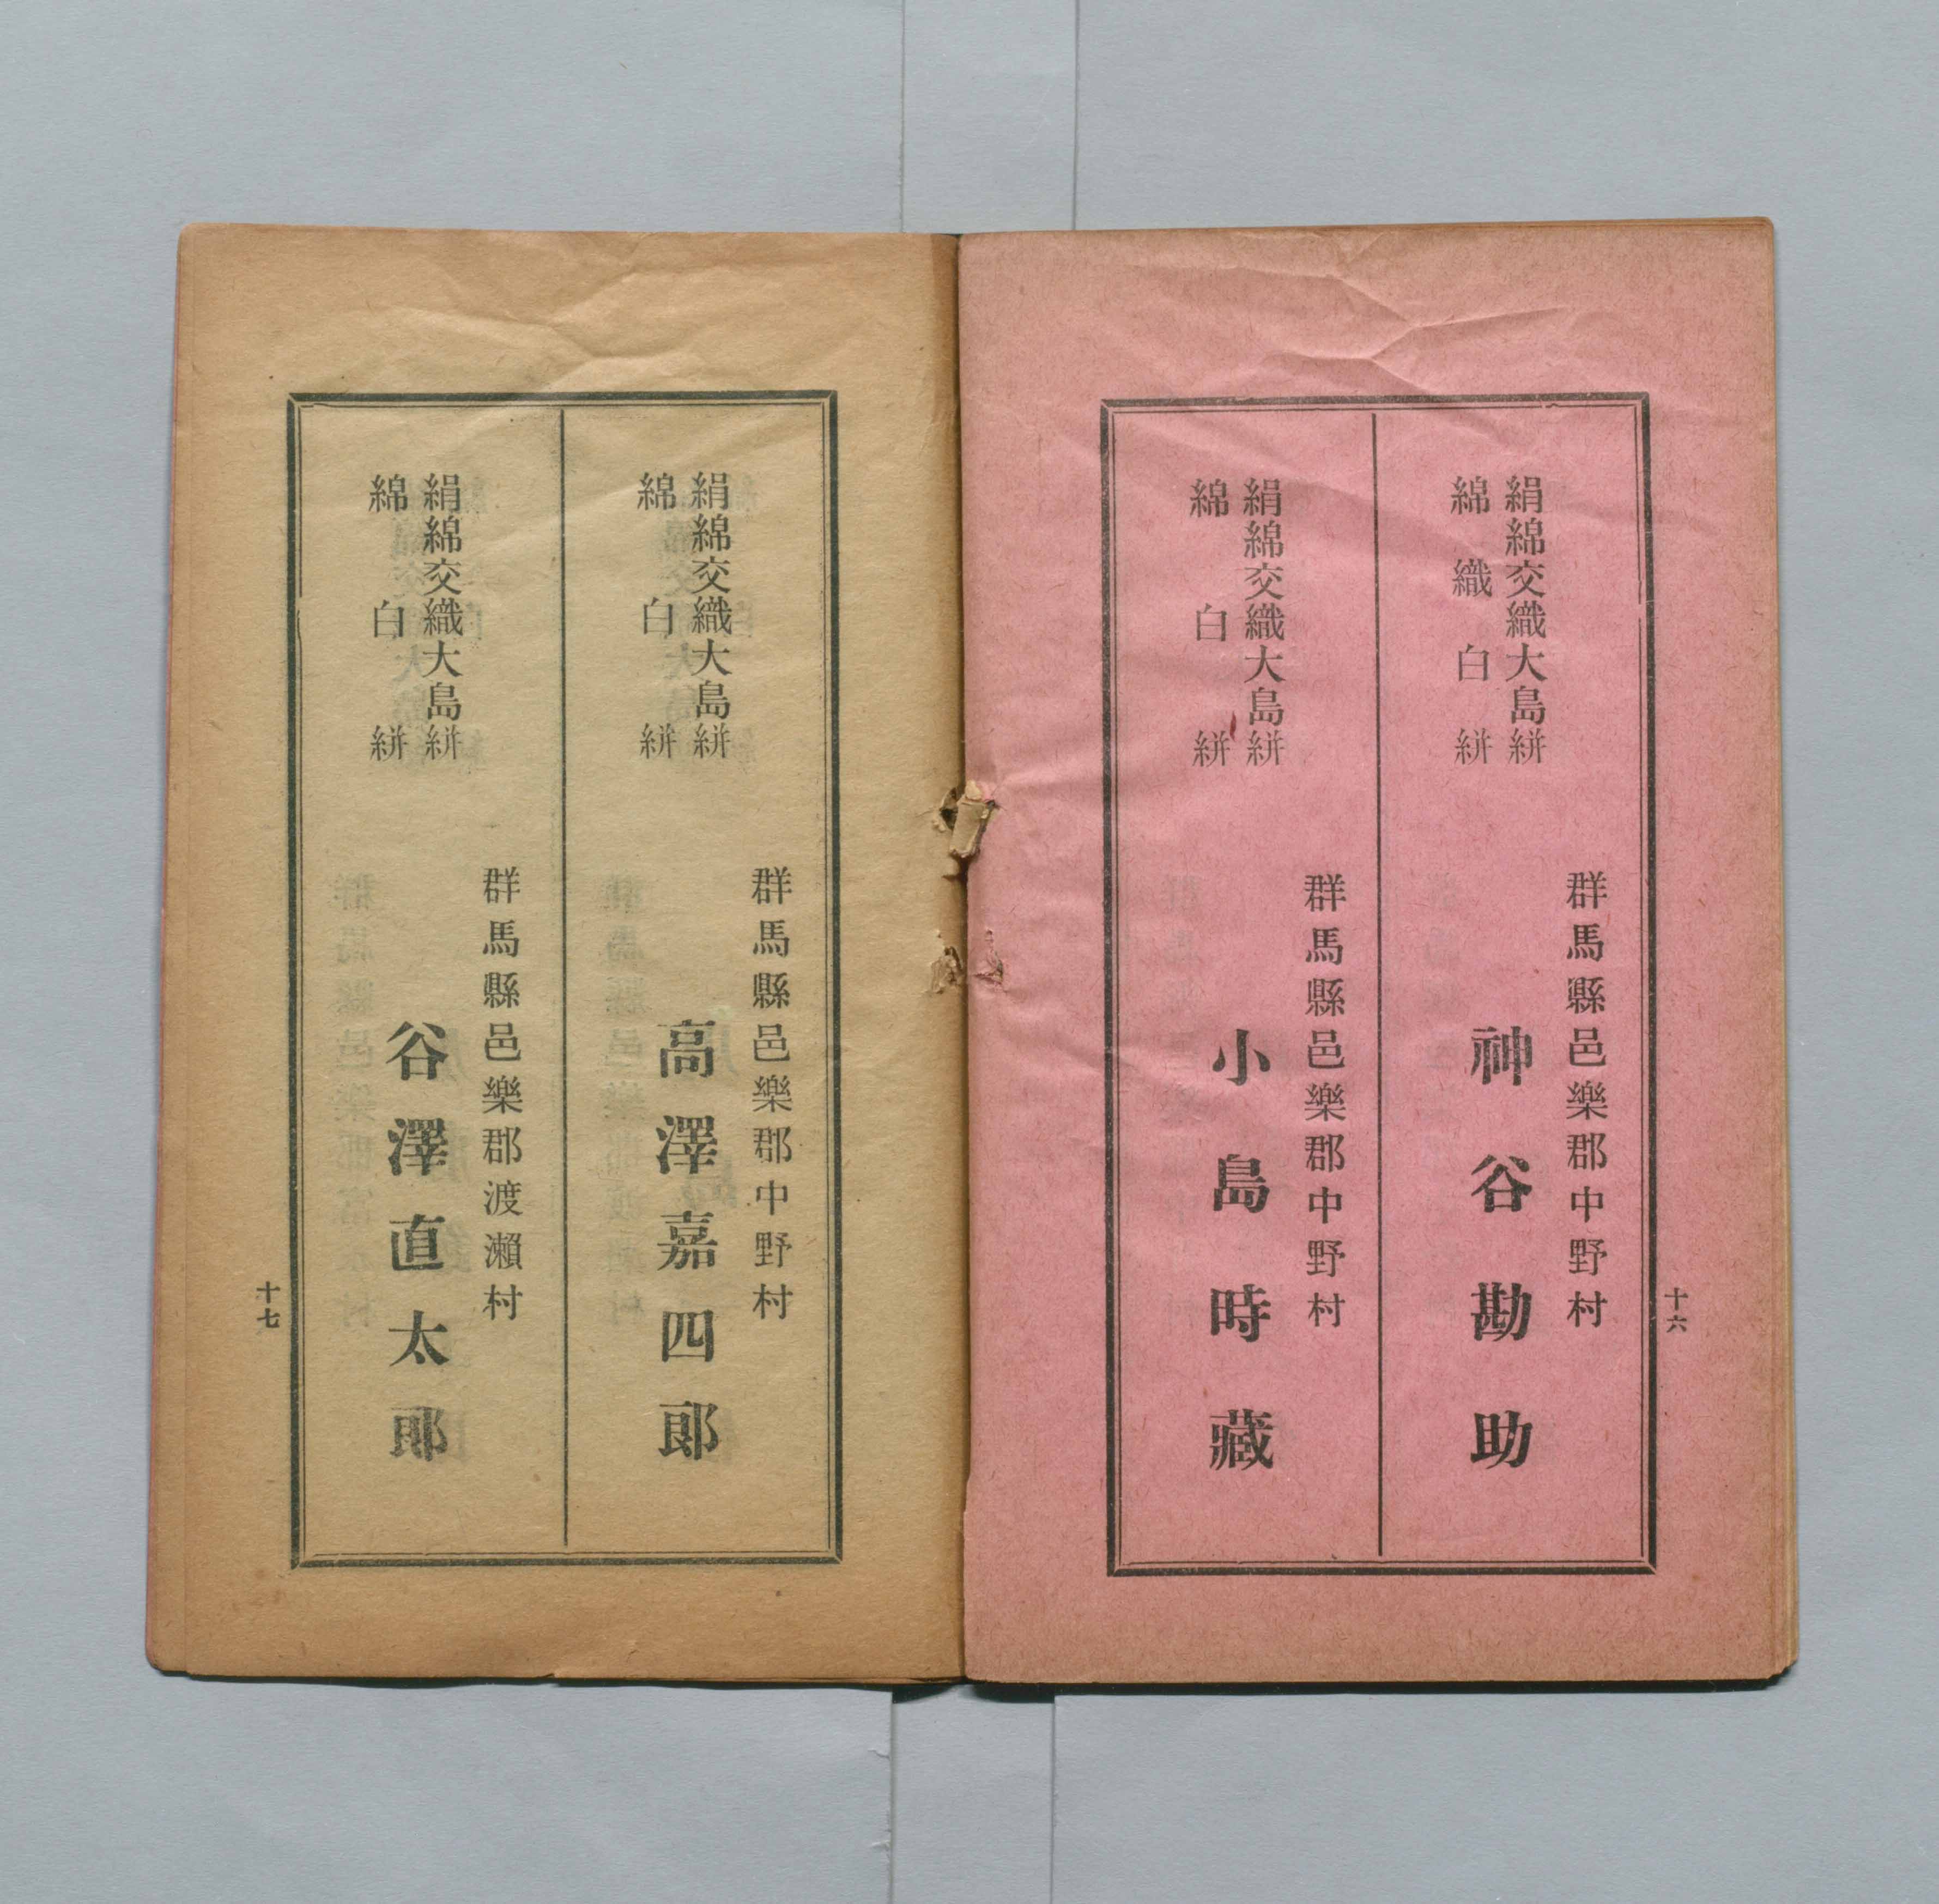 絹綿交織大島絣
綿織白絣
群馬縣邑樂郡中野村
神谷勘助
十六
絹綿交織大島絣
綿白絣
群馬縣邑樂郡中野村
小島時藏
絹綿交織大島絣
綿白絣
群馬縣邑樂郡中野村
高澤嘉四郎
絹綿交織大島絣
綿白絣
群馬縣邑樂郡渡瀨村
谷澤直太郎
十七